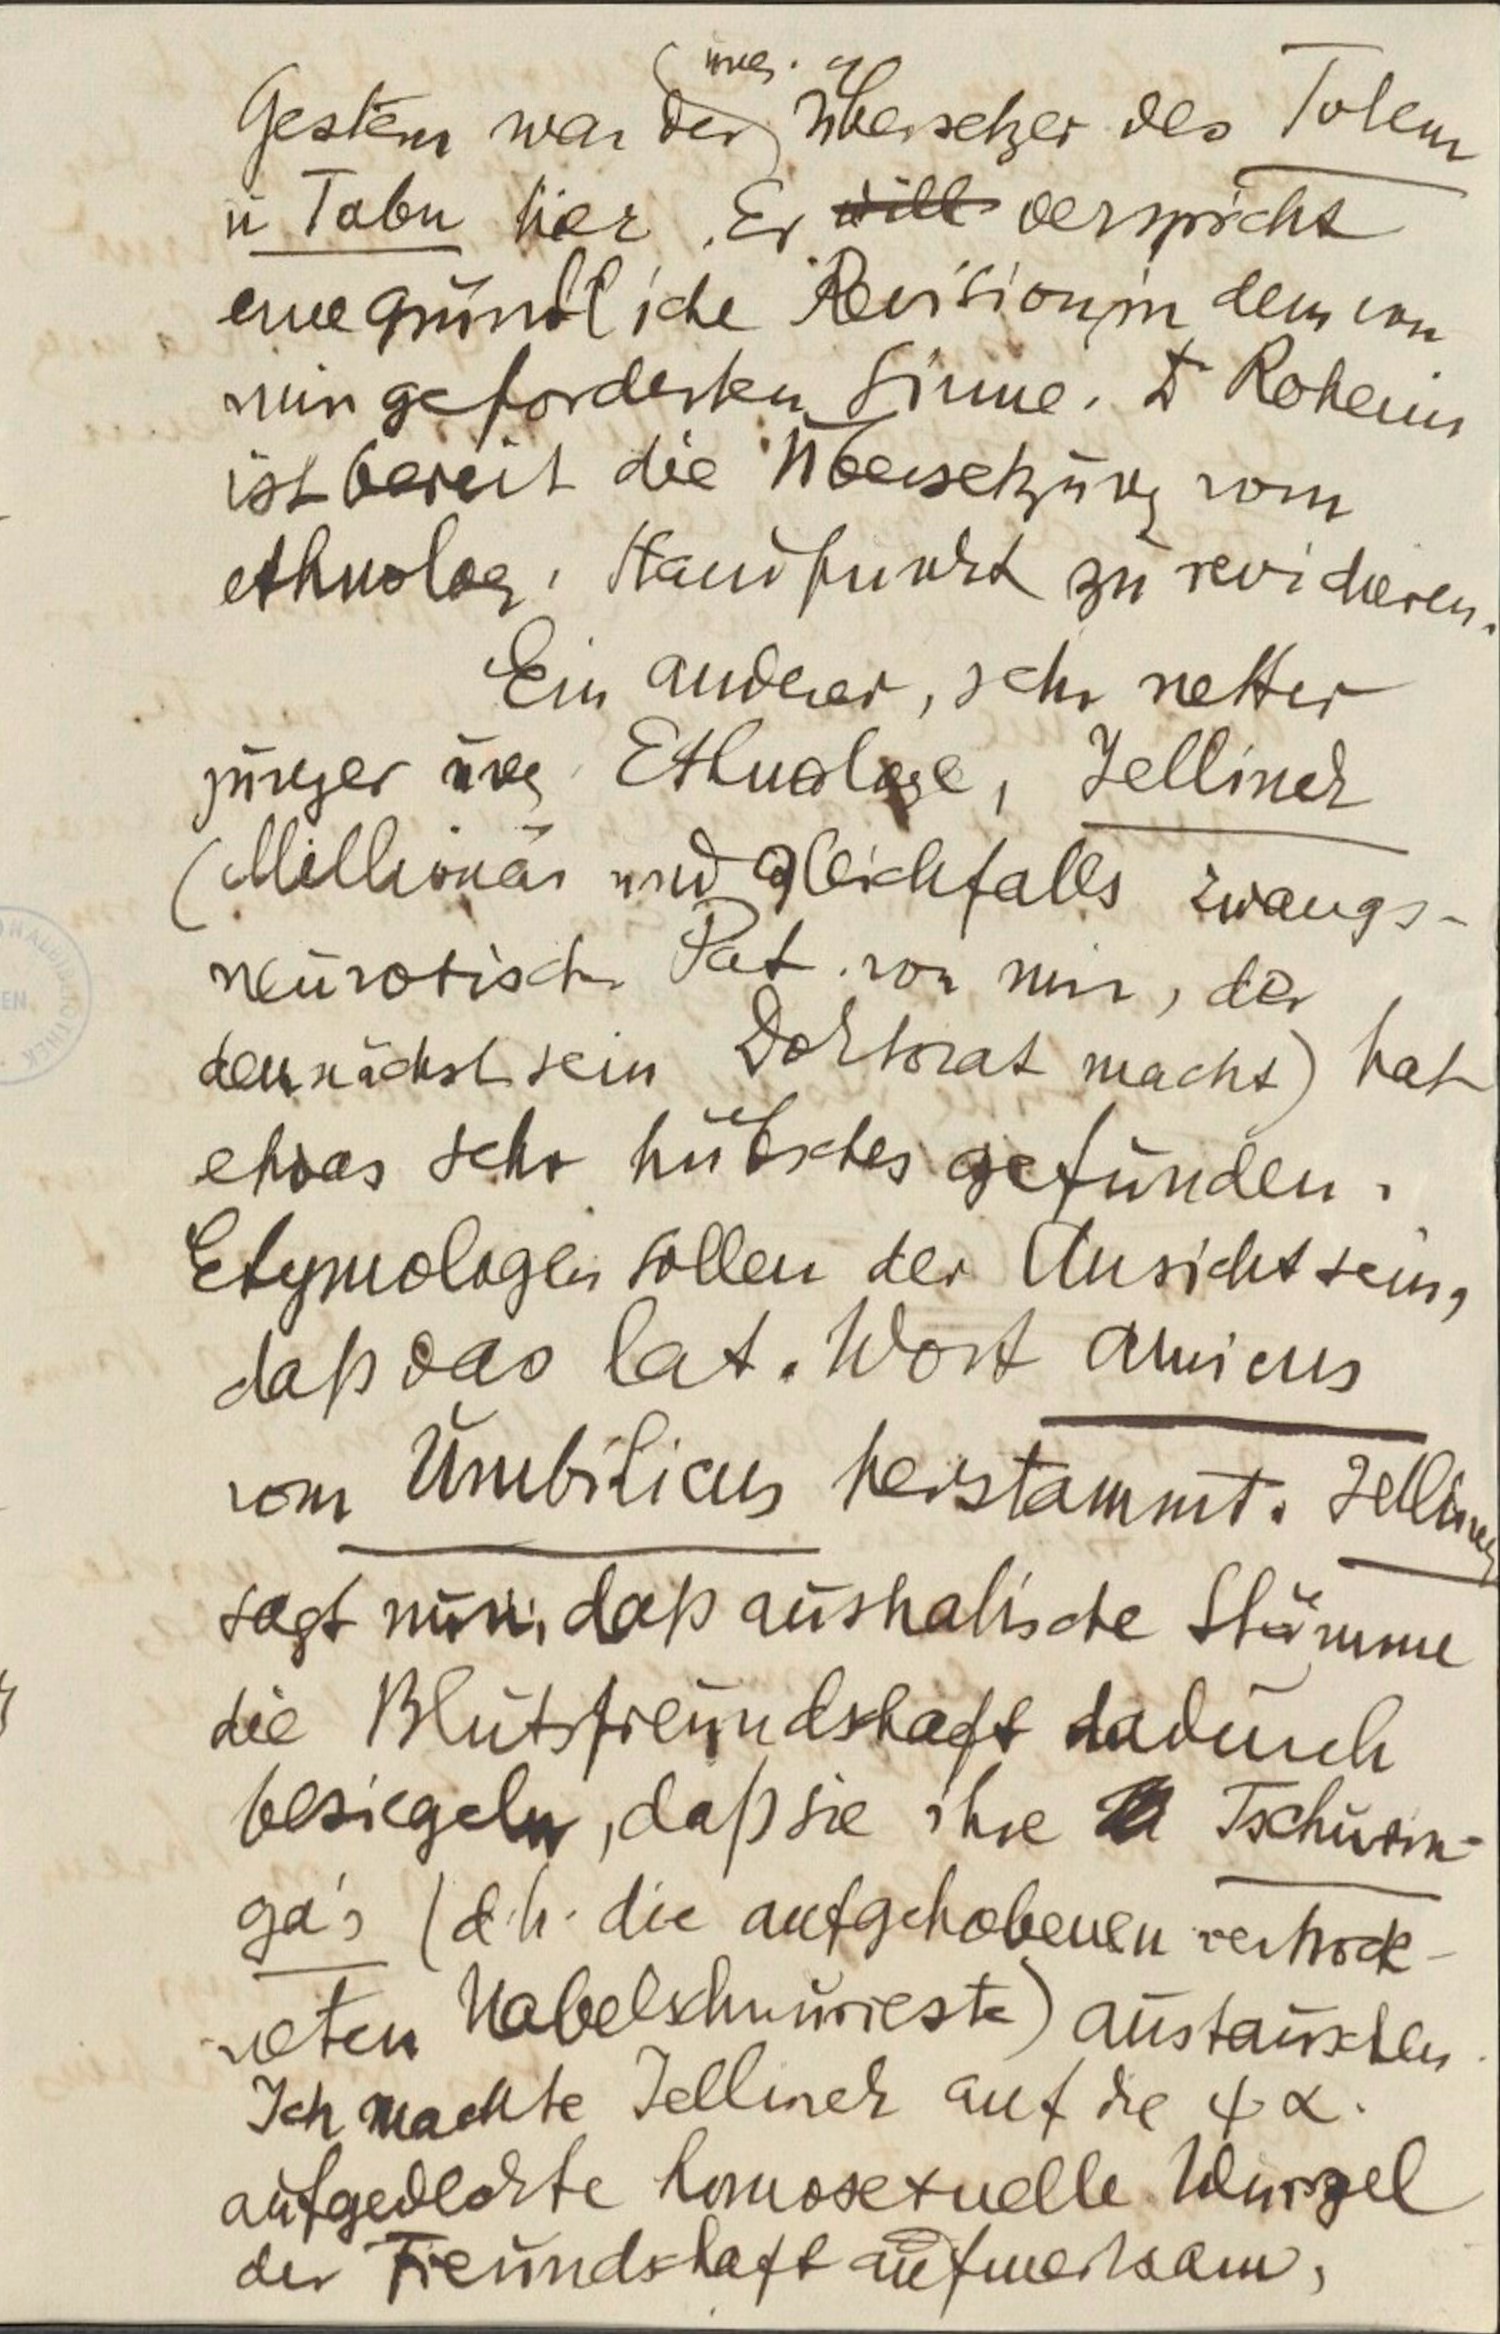 (ung.
Gestern war der Übersetzer des Totem
u Tabu hier. Er will verspricht
eine gründliche Revision in dem von
mir geforderten Sinne. Dr Roheim
ist bereit die Übersetzung vom
ethnolog. Standpunkt zu revidieren.
Ein anderer, sehr netter
junger ung. Ethnologe, Jellinek
(Millionär und gleichfalls zwangs-
neurotisch Pat. von mir, der
demnächst sein Doktorat macht) hat
etwas sehr hübsches gefunden.
Etymologen sollen der Ansicht sein,
daß das lat. Wort amicus
vom Umbilicus herstammt. Jellinek
sagt nun, daß australische Stämme
die Blutsfreundschaft dadurch
besiegeln, daß sie ihre Tschurin-
ga's (d.h. die aufgehobenen vertrock-
neten Nabelschnurreste) austauschen.
Ich machte Jellinek auf die ψα.
aufgedeckte homosexuelle Wurzel
der Freundschaft aufmerksam,